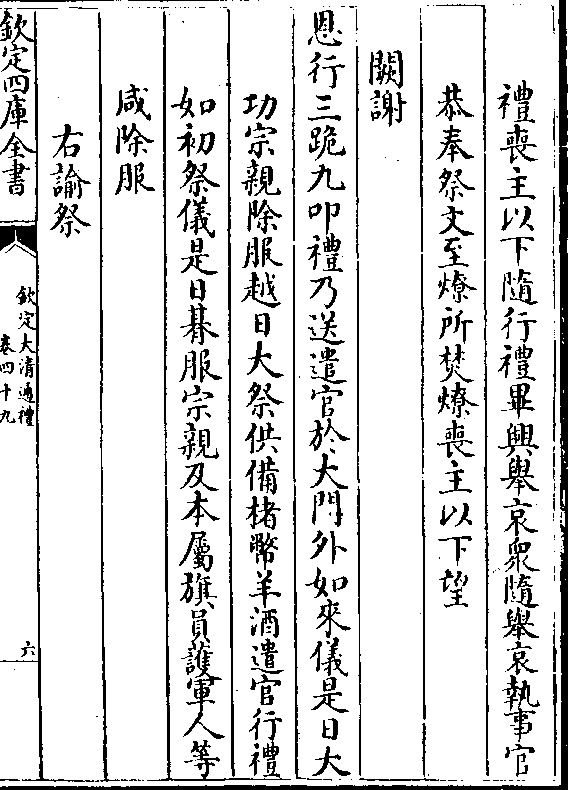 禮喪主以下隨行禮畢興舉哀衆隨舉哀執事官
恭奉祭文至燎所焚燎喪主以下望
闕謝
恩行三跪九叩禮乃送遣官於大門外如來儀是日大
功宗親除服越日大祭供備楮幣羊酒遣官行禮
如初祭儀是日朞服宗親及本屬旗員護軍人等
咸除服
右諭祭
欽定四庫全書
欽定大清通禮
卷四十九
六